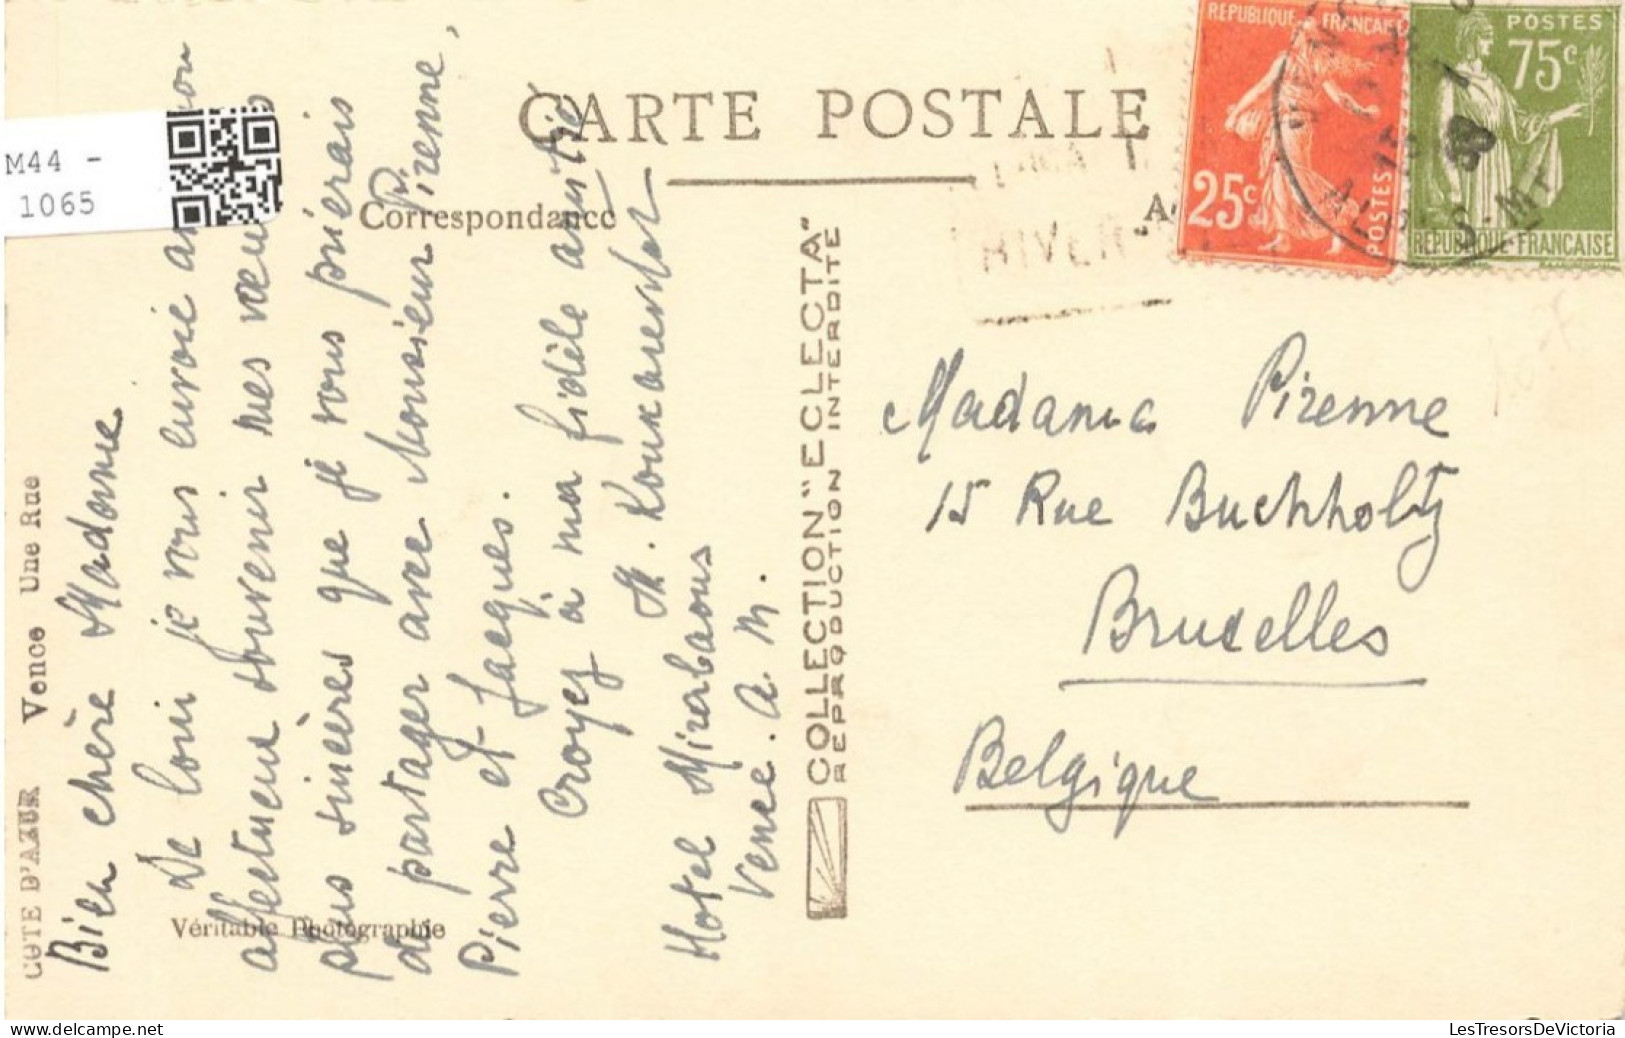 M44 -
1065
CARTE POSTALE
Correspondance
COTE D'AZUR Vence Une Rue
Véritable Photographie
Bien chère Madame
De loin je vous envoie
affectueux souvenir mes vœux
plus sincères que je vous prierais
de partager avec Monsieur Pirenne,
Pierre et Jacques.
Croyez à ma fidèle amitié
Hotel Mirabeau
Vence. A. M.
COLLECTION "ECLECTA"
REPRODUCTION INTERDITE
HIVER
REPUBLIQUE FRANCAISE
25c
POSTES
POSTES
75c
REPUBLIQUE FRANÇAISE
Madame Pirenne
15 Rue Buchholtz
Bruxelles
Belgique
LesTresorsDeVictoria (delcampe.net)